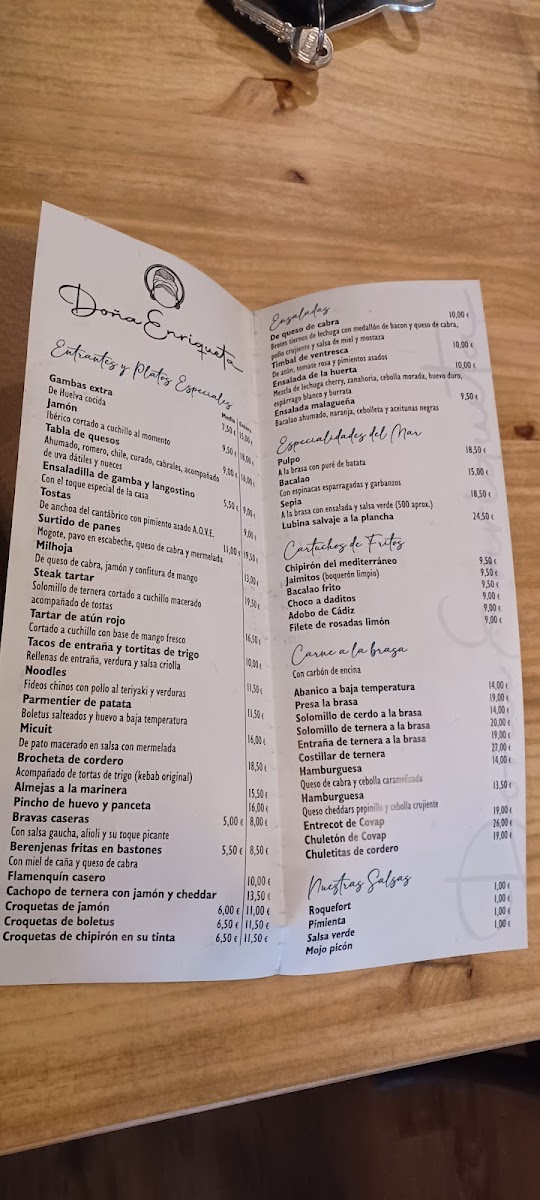 Doña Enriqueta
Entrantes y Platos Especiales
Media
Gambas extra 7,50 €
De Huelva cocida
Jamón 9,50 €
Ibérico cortado a cuchillo al momento
Tabla de quesos 9,00 € 16,00 €
Ahumado, romero, chile, curado, cabrales, acompañado
de uva dátiles y nueces
Ensaladilla de gamba y langostino 5,50 € 9,00 €
Con el toque especial de la casa
Tostas 9,00 €
De anchoa del cantábrico con pimiento asado A.O.V.E.
Surtido de panes 11,00 € 19,50 €
Mogote, pavo en escabeche, queso de cabra y mermelada
Milhoja 13,00 €
De queso de cabra, jamón y confitura de mango
Steak tartar 19,50 €
Solomillo de ternera cortado a cuchillo macerado
acompañado de tostas
Tartar de atún rojo 16,50 €
Cortado a cuchillo con base de mango fresco
Tacos de entraña y tortitas de trigo 10,00 €
Rellenas de entraña, verdura y salsa criolla
Noodles 11,50 €
Fideos chinos con pollo al teriyaki y verduras
Parmentier de patata 11,50 €
Boletus salteados y huevo a baja temperatura
Micuit 16,00 €
De pato macerado en salsa con mermelada
Brocheta de cordero 18,50 €
Acompañado de tortas de trigo (kebab original)
Almejas a la marinera 15,50 €
Pincho de huevo y panceta 16,00 €
Bravas caseras 5,00 € 8,00 €
Con salsa gaucha, alioli y su toque picante
Berenjenas fritas en bastones 5,50 € 8,50 €
Con miel de caña y queso de cabra
Flamenquín casero 10,00 €
Cachopo de ternera con jamón y cheddar 13,50 €
Croquetas de jamón 6,00 € 11,00 €
Croquetas de boletus 6,50 € 11,50 €
Croquetas de chipirón en su tinta 6,50 € 11,50 €
Ensaladas
De queso de cabra 10,00 €
Brotes tiernos de lechuga con medallón de bacon y queso de cabra,
pollo crujiente y salsa de miel y mostaza
Timbal de ventresca 10,00 €
De atún, tomate rosa y pimientos asados
Ensalada de la huerta 10,00 €
Mezcla de lechuga cherry, zanahoria, cebolla morada, huevo duro,
espárrago blanco y burrata
Ensalada malagueña 9,50 €
Bacalao ahumado, naranja, cebolleta y aceitunas negras
Especialidades del Mar
Pulpo 18,50 €
A la brasa con puré de batata
Bacalao 15,00 €
Con espinacas esparragadas y garbanzos
Sepia 18,50 €
A la brasa con ensalada y salsa verde (500 aprox.)
Lubina salvaje a la plancha 24,50 €
Cartuchos de Fritos
Chipirón del mediterráneo 9,50 €
Jaimitos (boquerón limpio) 9,50 €
Bacalao frito 9,50 €
Choco a daditos 9,00 €
Adobo de Cádiz 9,00 €
Filete de rosadas limón 9,00 €
Carne a la brasa
Con carbón de encina
Abanico a baja temperatura 14,00 €
Presa la brasa 19,00 €
Solomillo de cerdo a la brasa 14,00 €
Solomillo de ternera a la brasa 20,00 €
Entraña de ternera a la brasa 19,00 €
Costillar de ternera 27,00 €
Hamburguesa 14,00 €
Queso de cabra y cebolla caramelizada
Hamburguesa 13,50 €
Queso cheddars pepinillo y cebolla crujiente
Entrecot de Covap 19,00 €
Chuletón de Covap 26,00 €
Chuletitas de cordero 19,00 €
Nuestras Salsas
Roquefort 1,00 €
Pimienta 1,00 €
Salsa verde 1,00 €
Mojo picón 1,00 €